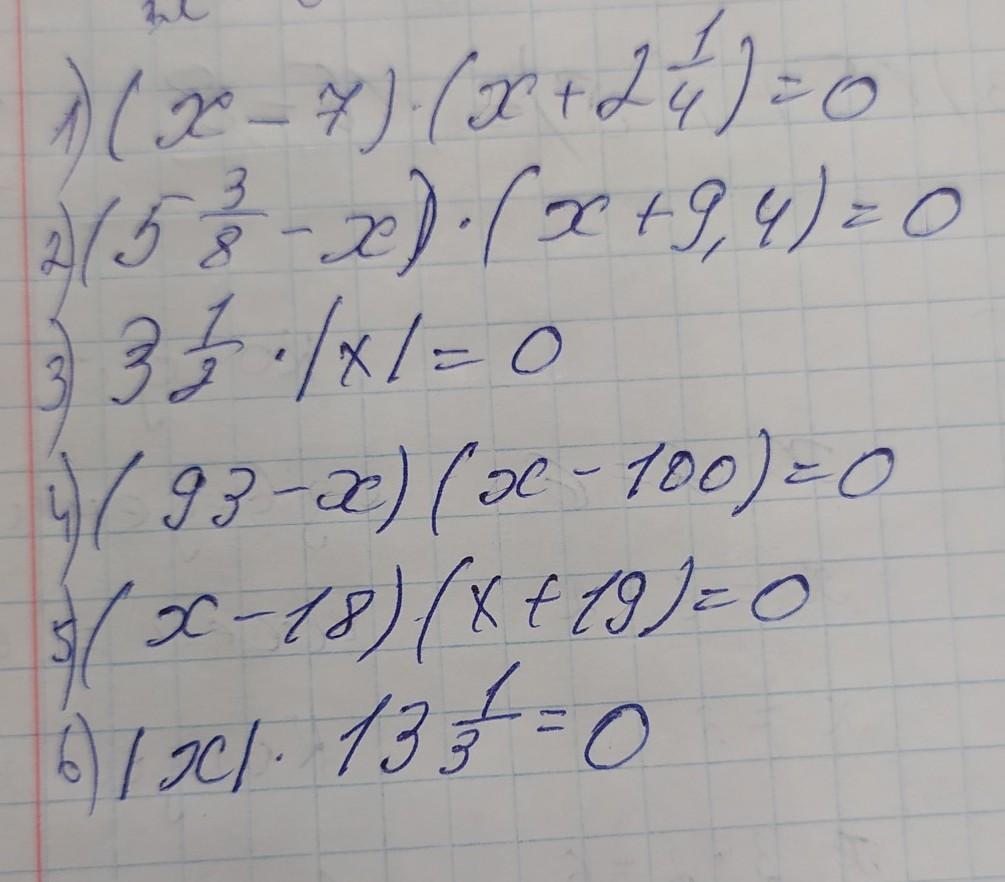 1) (x - 7) · (x + 2 1/4) = 0
2) (5 3/8 - x) · (x + 9,4) = 0
3) 3 1/2 · |x| = 0
4) (93 - x) (x - 100) = 0
5) (x - 18) · (x + 19) = 0
6) |x| · 13 1/3 = 0